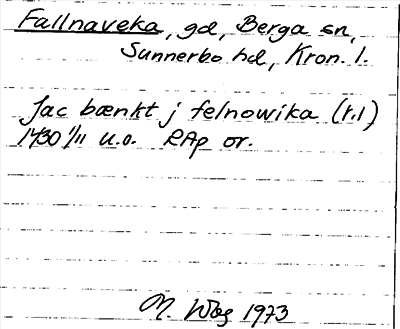 Fallnaveka, gd, Berga sn,
Sunnerbo hd, Kron. l.
Jac bænkt j felnowika (r.l)
1430 1/11 u.o. RAp or.
M. Wbg 1973